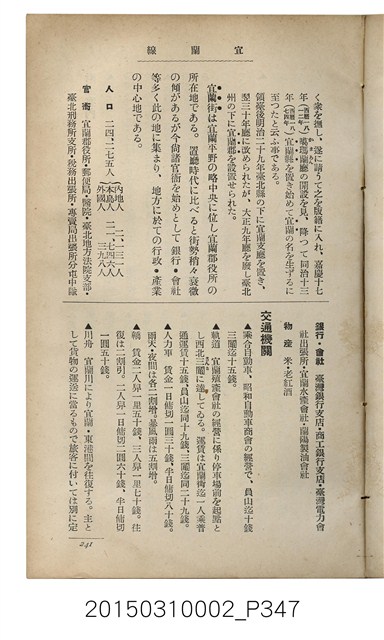 宜蘭線
く衆を撫し、遂に請うて之を版籍に入れ、嘉慶十七
年(西暦一八一二年)噶瑪蘭廳の開設を見、降つて同治十三
年(西暦一八七四年)宜蘭縣を置き始めて宜蘭の名を生ずるに
至つたと云ふ事である。
領臺後明治二十九年臺北縣の下に宜蘭支廳を置き、
翌三十年廳に改められたが、大正九年廳を廢し臺北
州の下に宜蘭郡を設置せられた。
宜蘭街は宜蘭平野の略中央に位し宜蘭郡役所の
所在地である。置廳時代に比べると街勢稍々衰微
の傾があるが今尚諸官衙を始めとして銀行・會社
等多く此の地に集まり、地方に於ての行政・産業
の中心地である。
人口 二四、二七五人
官衙 宜蘭郡役所・郵便局・醫院・臺北地方法院支部・
臺北刑務所支所・税務出張所・專賣局出張所・分屯中隊
銀行・會社 臺灣銀行支店・商工銀行支店・臺灣電力會
社出張所・宜蘭水産會社・蘭陽製油會社
物産 米・老紅酒
交通機關
▲乘合自動車、昭和自動車商會の經營で、員山迄十錢
三鬮迄十五錢。
▲軌道 宜蘭殖産會社の經營に係り停車場前を起點と
し西北三鬮に達してゐる。運賃は宜蘭街迄一人乘普
通運賃十五錢、員山迄同十九錢、三鬮迄同二十九錢。
▲人力車 賃金一日傭切一圓三十錢、半日傭切八十錢。
雨天・夜間は各二割增、暴風雨は五割增。
▲轎 賃金二人舁一里五十錢、三人舁一里七十錢。往
復は二割引、二人舁一日傭切二圓六十錢、半日傭切
一圓五十錢。
▲川舟 宜蘭川により宜蘭・東港間を往復する。主と
して貨物の運送に當るもので旅客に付いては別に定
241
20150310002_P347